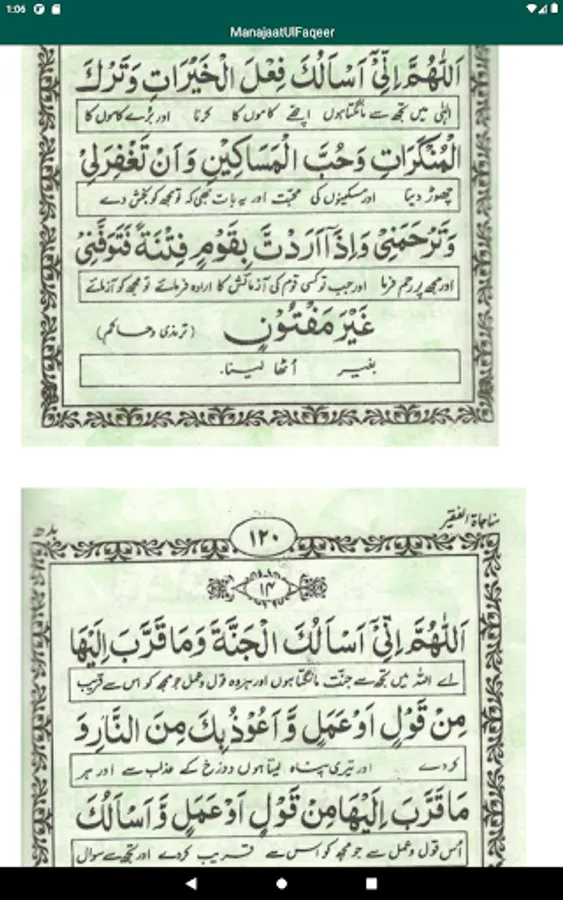 1:06
ManajaatUlFaqeer
اَللّٰهُمَّ اِنِّیْۤ اَسْاَلُكَ فِعْلَ الْخَیْرَاتِ وَتَرْكَ
الٰہی میں تجھ سے مانگتا ہوں اچھے کاموں کا کرنا اور بُرے کاموں کا
الْمُنْكَرَاتِ وَحُبَّ الْمَسَاكِیْنِ وَاَنْ تَغْفِرَلِیْ
چھوڑ دینا اور مسکینوں کی محبّت اور یہ بات بھی کہ تو مجھ کو بخش دے
وَتَرْحَمَنِیْ وَاِذَاۤ اَرَدْتَّ بِقَوْمٍ فِتْنَةً فَتَوَفَّنِیْ
اور مجھ پر رحم فرما اور جب تو کسی قوم کی آزمائش کا ارادہ فرمائے تو مجھ کو آزمائے
غَیْرَ مَفْتُوْنٍ (ترمذی وحاکم)
بغیر اُٹھا لینا۔
مناجاۃ الفقیر ۱۲۰
۱۴
اَللّٰهُمَّ اِنِّیْۤ اَسْاَلُكَ الْجَنَّةَ وَمَا قَرَّبَ اِلَیْهَا
اے اللہ میں تجھ سے جنّت مانگتا ہوں اور ہر وہ قول وعمل جو مجھ کو اس سے قریب
مِنْ قَوْلٍ اَوْ عَمَلٍ وَّاَعُوْذُ بِكَ مِنَ النَّارِ وَ
کردے اور تیری پناہ لیتا ہوں دوزخ کے عذاب سے اور ہر
مَا قَرَّبَ اِلَیْهَا مِنْ قَوْلٍ اَوْ عَمَلٍ وَّاَسْاَلُكَ
اُس قول وعمل سے جو مجھ کو اس سے قریب کردے اور تجھ سے سوال